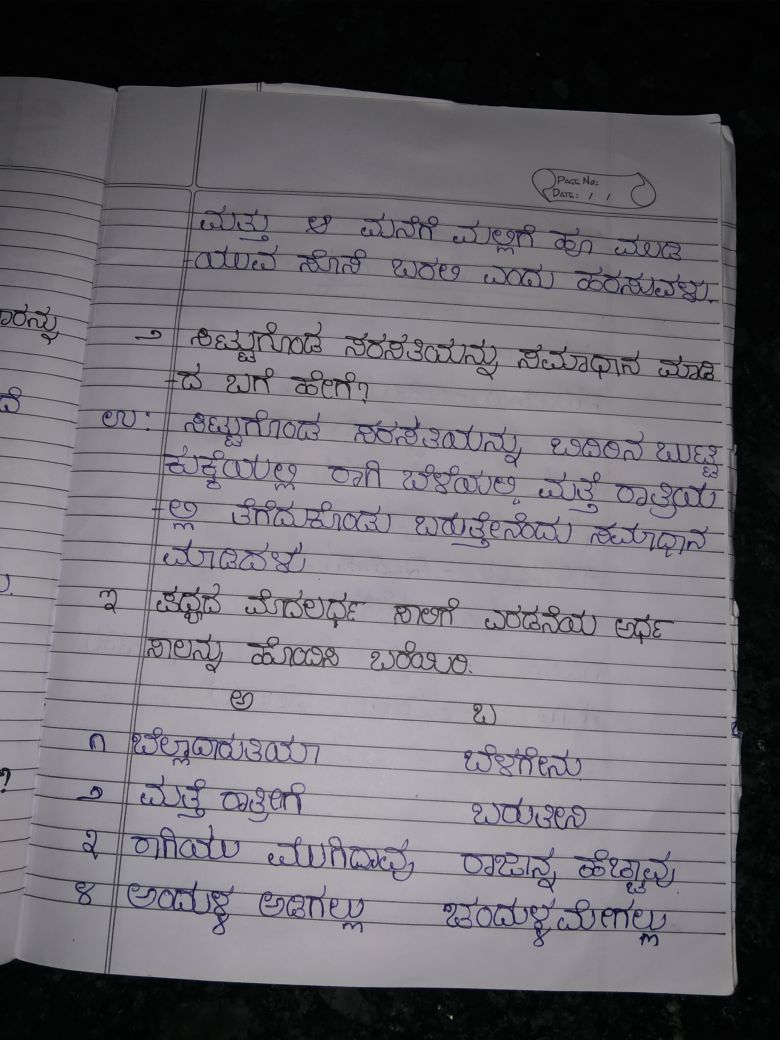 PAGE NO:
DATE: / /
ಮತ್ತು ಆ ಮನೆಗೆ ಮಲ್ಲಿಗೆ ಹೂ ಮುಡಿ
-ಯುವ ಸೊಸೆ ಬರಲಿ ಎಂದು ಹರಸುವಳು.
೨ ಸಿಟ್ಟುಗೊಂಡ ಸರಸತಿಯನ್ನು ಸಮಾಧಾನ ಮಾಡಿ
-ದ ಬಗೆ ಹೇಗೆ?
ಉ: ಸಿಟ್ಟುಗೊಂಡ ಸರಸತಿಯನ್ನು ಬಿದಿರಿನ ಬುಟ್ಟಿ
ಕುಕ್ಕೆಯಲ್ಲಿ ರಾಗಿ ಬೆಳೆಯಲಿ, ಮತ್ತೆ ರಾತ್ರಿಯ
-ಲ್ಲಿ ತೆಗೆದುಕೊಂಡು ಬರುತ್ತೇನೆಂದು ಸಮಾಧಾನ
ಮಾಡಿದಳು
ಇ ಪದ್ಯದ ಮೊದಲರ್ಧ ಸಾಲಿಗೆ ಎರಡನೆಯ ಅರ್ಧ
ಸಾಲನ್ನು ಹೊಂದಿಸಿ ಬರೆಯಿರಿ.
ಅ ಬ
೧ ಬೆಲ್ಲಾದಾರುತಿಯಾ ಬೆಳಗೇನು
೨ ಮತ್ತೆ ರಾತ್ರೀಗೆ ಬರುತೀನಿ
೩ ರಾಗಿಯು ಮುಗಿದಾವು ರಾಜಾನ್ನ ಹೆಚ್ಚಾವು
೪ ಅಂದುಳ್ಳ ಅಡಿಗಲ್ಲು ಚಂದುಳ್ಳ ಮೇಗಲ್ಲು